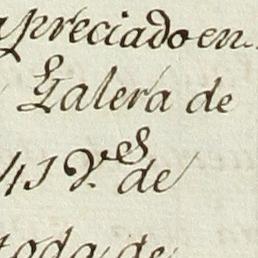 apreciado en
Galera de
41 V.S de
toda de